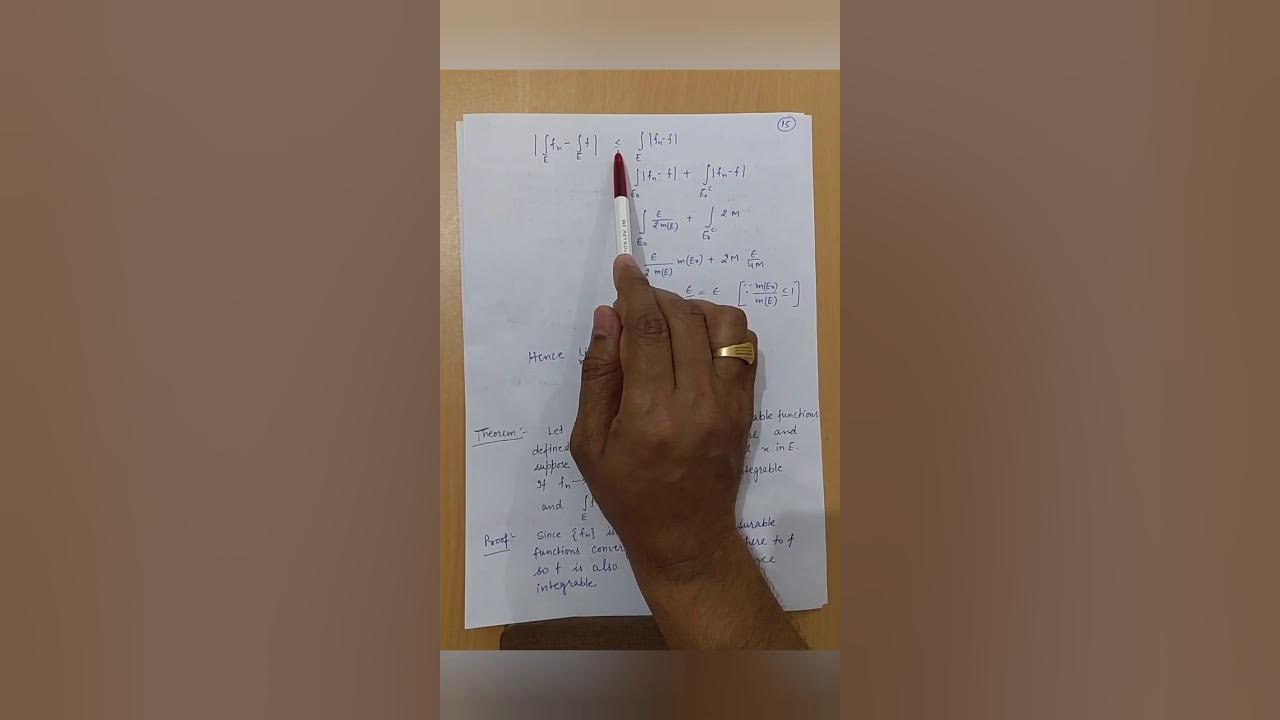 15
| ∫_E fn - ∫_E f | ≤ ∫_E |fn-f|
∫_E₀ |fn-f| + ∫_E₀ᶜ |fn-f|
∫_E₀ ε/2m(E) + ∫_E₀ᶜ 2M
ε/2m(E) m(E₀) + 2M ε/4M
= ε [∵ m(E₀)/m(E) ≤ 1]
Hence
Theorem:- Let able functions
defined and
suppose x in E.
If fn → tegrable
and ∫_E
Proof:- Since {fn} is surable
functions here to f
so f is also
integrable